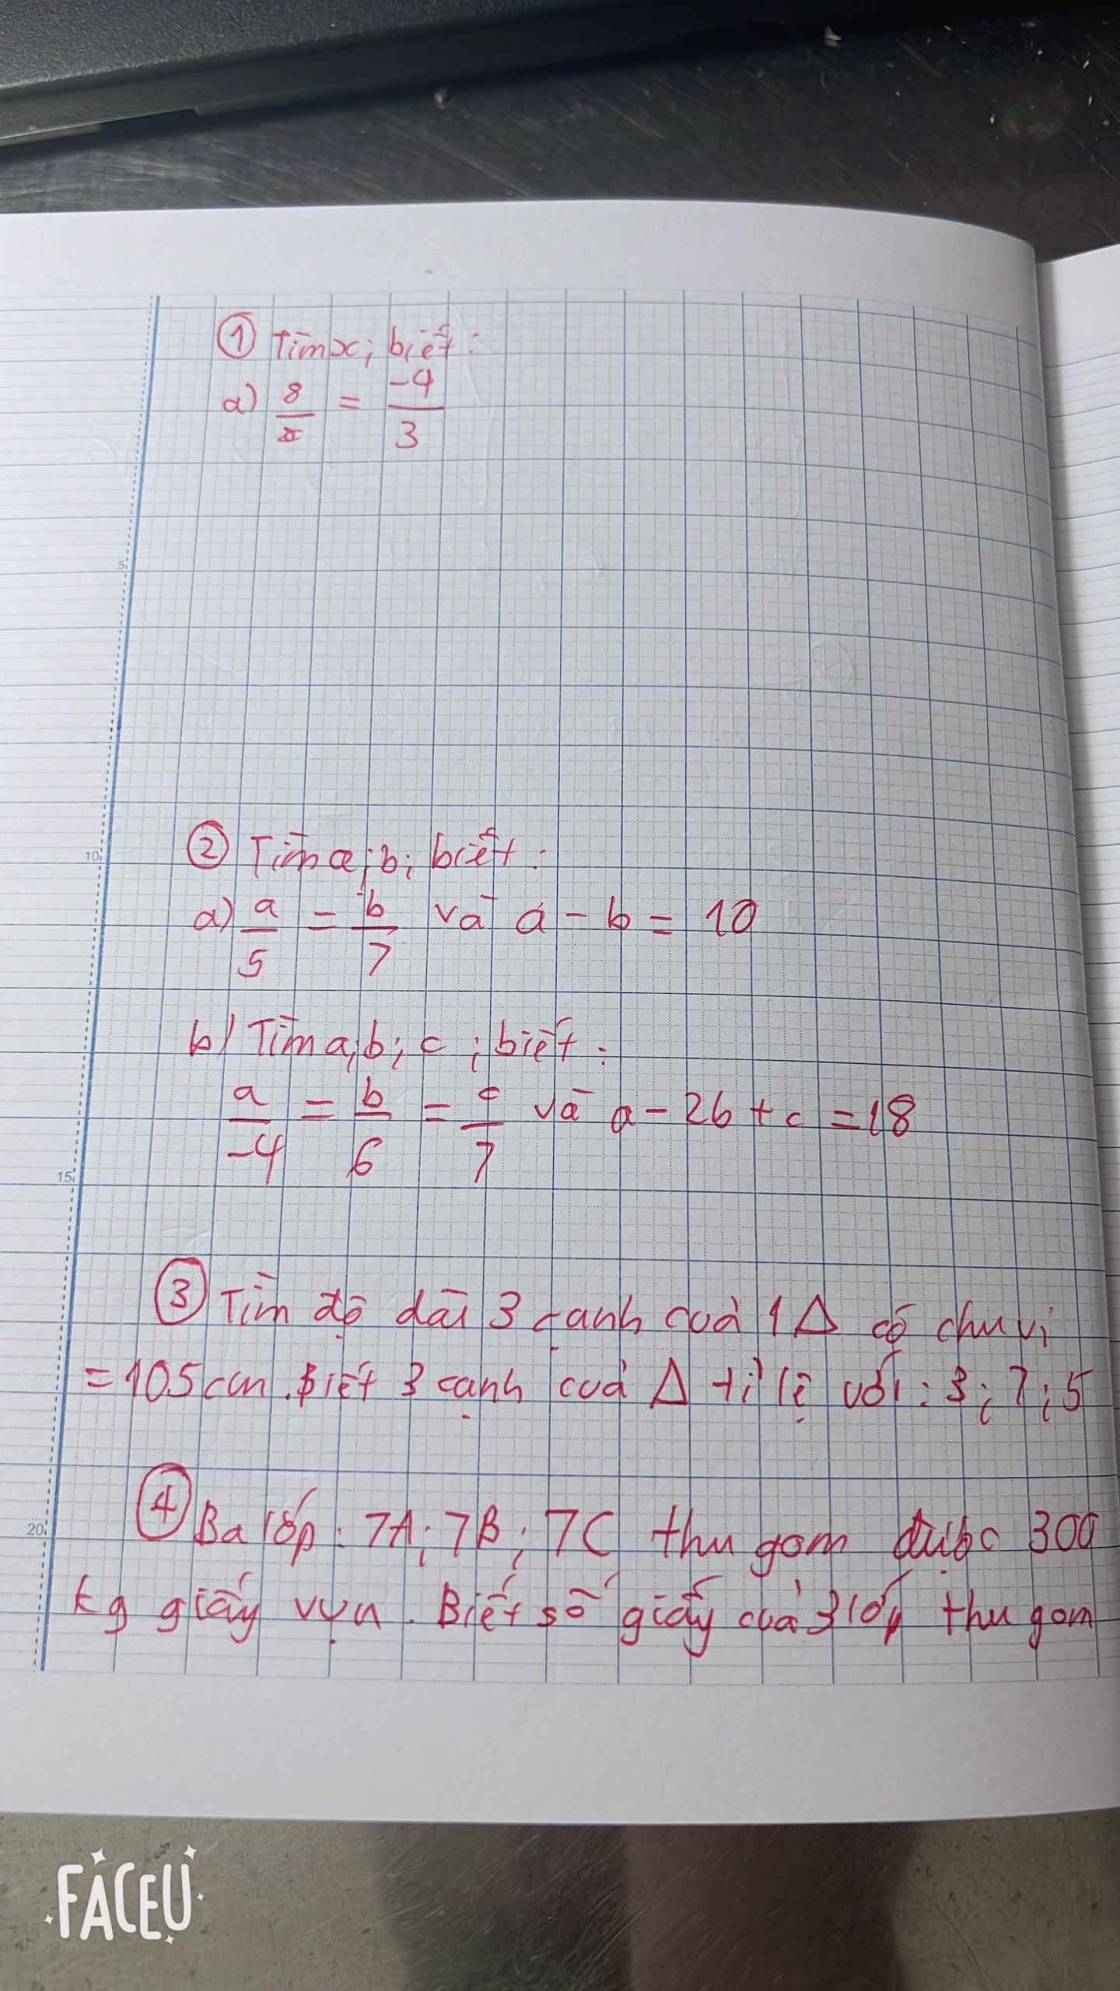 ① Tìm x; biết:
a) 8/x = -4/3
5
② Tìm a; b; biết:
10
a) a/5 = b/7 và a - b = 10
b) Tìm a; b; c; biết:
a/-4 = b/6 = c/7 và a - 2b + c = 18
15
③ Tìm độ dài 3 cạnh của 1 Δ có chu vi
= 105 cm. Biết 3 cạnh của Δ tỉ lệ với: 3; 7; 5
④ Ba lớp: 7A; 7B; 7C thu gom được 300
20
kg giấy vụn. Biết số giấy của 3 lớp thu gom
FACEU